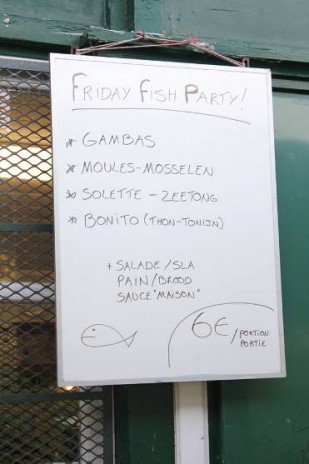 FRIDAY FISH PARTY!
* GAMBAS
* MOULES-MOSSELEN
* SOLETTE - ZEETONG
* BONITO (THON-TONIJN)
+ SALADE/SLA
PAIN/BROOD
SAUCE "MAISON"
6€/PORTION
PORTIE